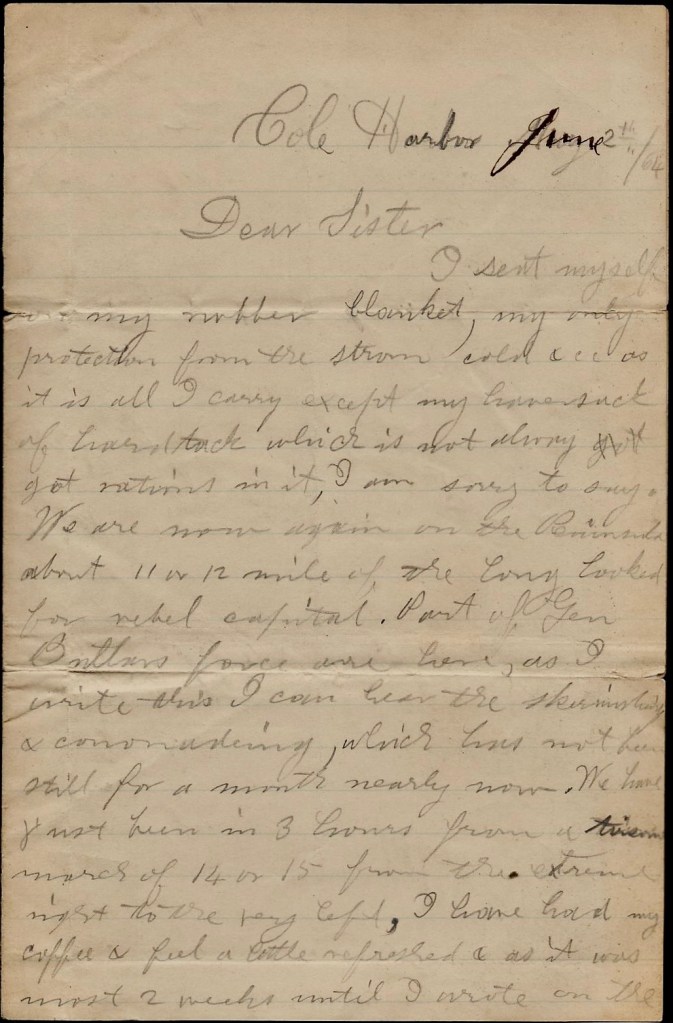 Cole Harbor June 2th /64
Dear Sister
I seat myself
on my rubber blanket, my only
protection from the strom cold &cc as
it is all I carry except my haversack
of hardtack which is not alway
got rations in it, I am sorry to say.
We are now again on the Peninsula
about 11 or 12 mile of the long looked
for rebel capital. Part of Gen
Butlars force are here, as I
write this I can hear the skirmishing
& connonadeing, which has not been
still for a month nearly now. We have
just been in 3 hours from a
march of 14 or 15 from the extreme
right to the very left, I have had my
coffee & feel a little refreshed & as it was
most 2 weeks until I wrote on the